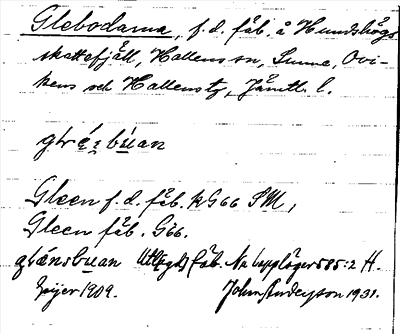 Glebodarna, f. d. fäb. å Hundshögs
skattefjäll, Hallens sn, Sunne, Ovi-
kens och Hallens tg, Jämtl. l.
Gleen f. d. fäb. k G66 SM,
Gleen fäb. G66.
utbygds fäb. Na lapplöger 585:2 H.
Geijer 1909. John Anderson 1931.